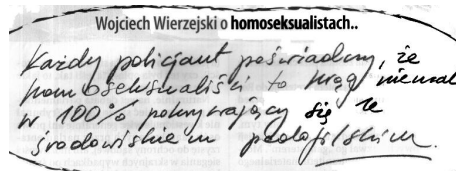 Wojciech Wierzejski o homoseksualistach..
Każdy policjant poświadczy, że
homoseksualiści to krąg niemal
w 100% pokrywający się ze
środowiskiem pedofilskim.